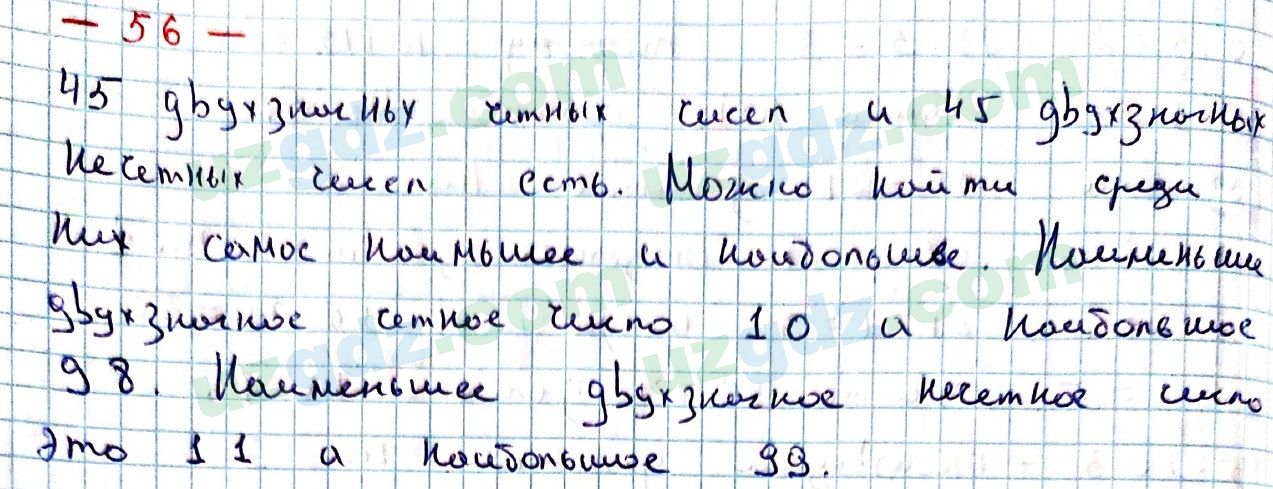 - 56 -
45 двухзначных четных чисел и 45 двухзначных
нечетных чисел есть. Можно найти среди
них самое наимьшее и наибольшее. Наименьшее
двухзначное четное число 10 а наибольшое
98. Наименьшее двухзначное нечетное число
это 11 а наибольшое 99.
uzgdz.com uzgdz.com
uzgdz.com uzgdz.com